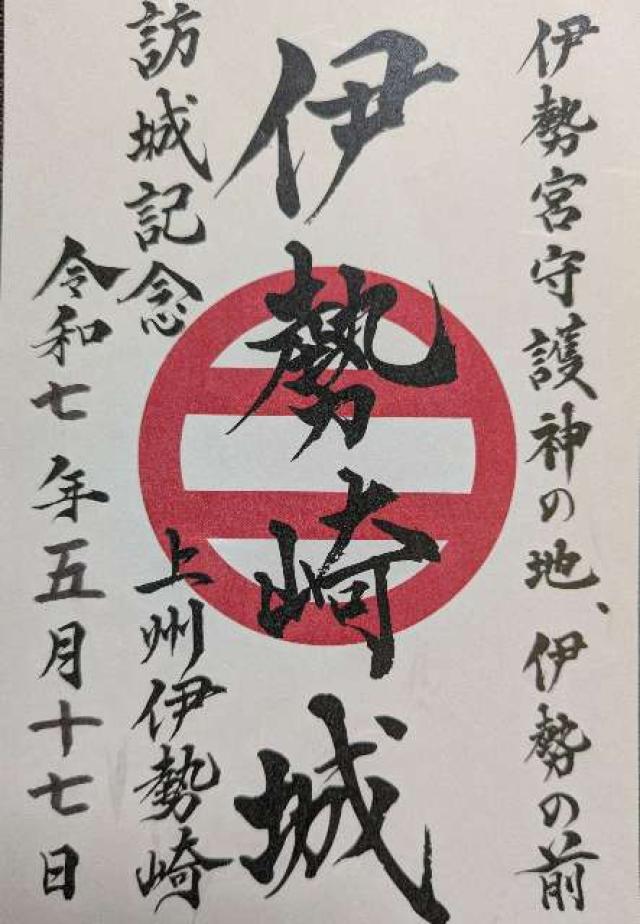 伊勢宮守護神の地、伊勢の前
伊勢崎城
訪城記念
上州伊勢崎
令和七年五月十七日